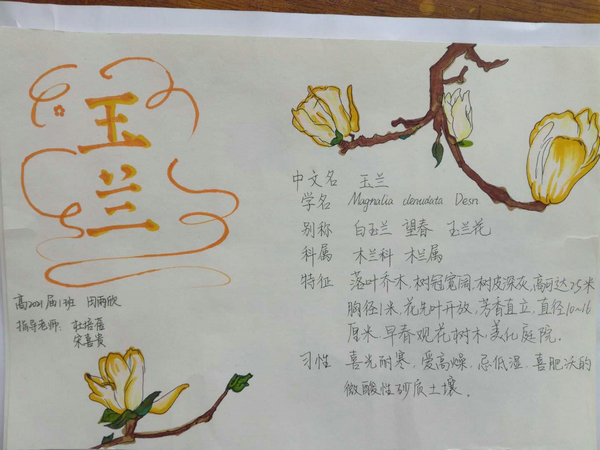 玉兰
高2021届1班 田雨欣
指导老师: 杜培蓓
宋喜贵
中文名 玉兰
学名 Magnalia denudata Desr
别称 白玉兰 望春 玉兰花
科属 木兰科 木兰属
特征 落叶乔木,树冠宽阔,树皮深灰,高可达25米
胸径1米,花先叶开放,芳香直立,直径10~16
厘米.早春观花树木.美化庭院.
习性 喜光耐寒.爱高燥.忌低湿.喜肥沃的
微酸性砂质土壤。